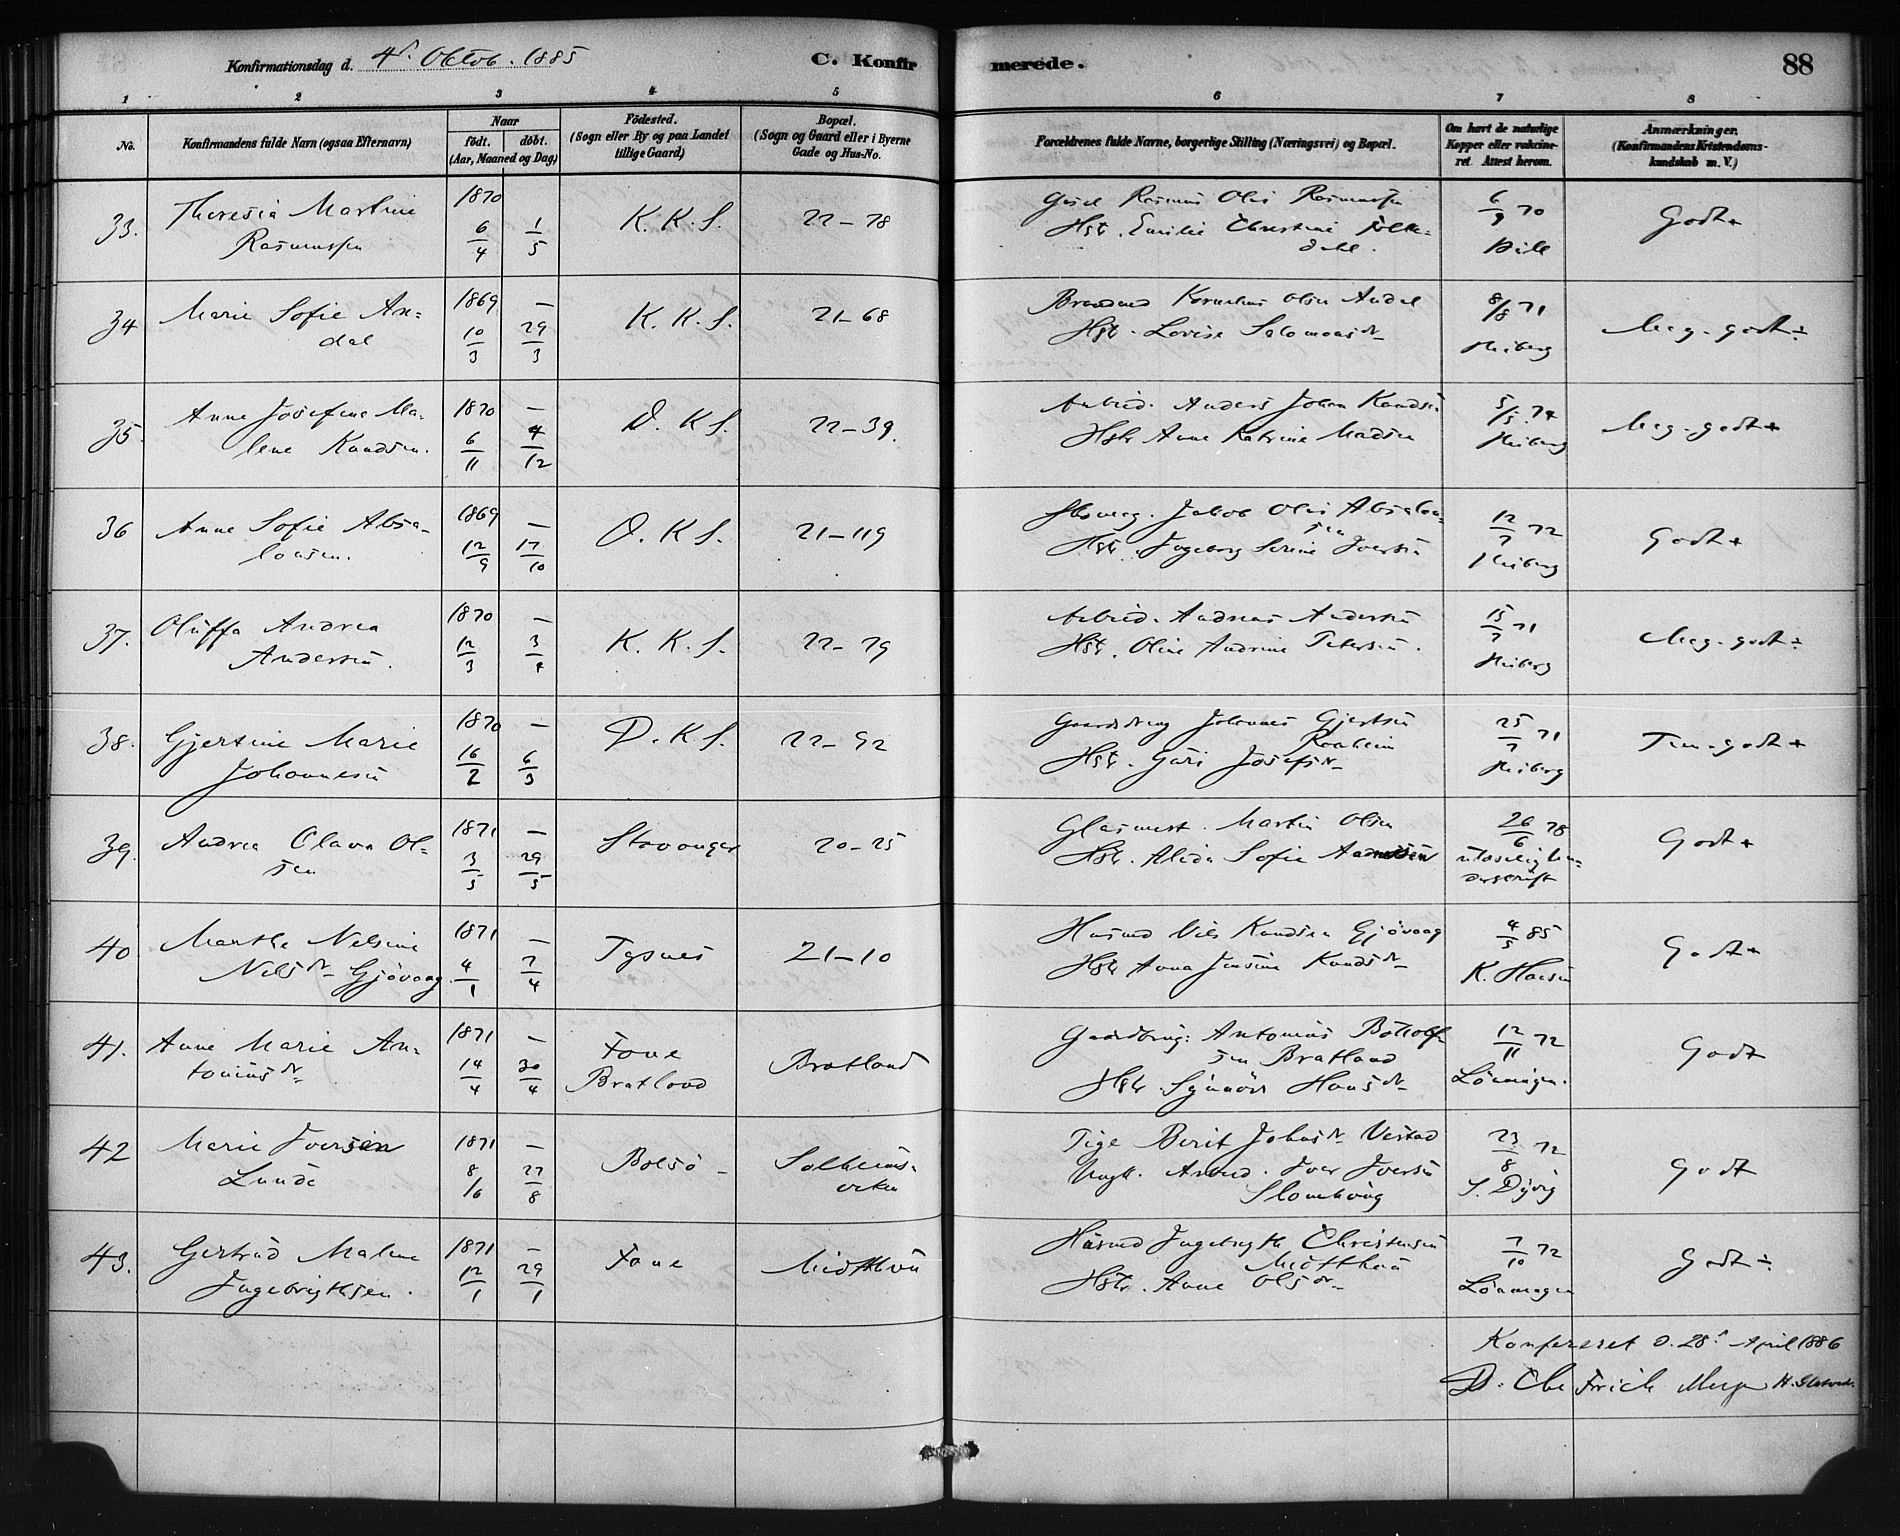 Konfirmationsdag d. 4de Oktob. 1885
C. Konfirmerede.
88
1 2 3 4 5 6 7 8
No. Konfirmandens fulde Navn (ogsaa Efternavn)
Naar födt. döbt. (Aar, Maaned og Dag)
Födested. (Sogn eller By og paa Landet tillige Gaard)
Bopæl. (Sogn og Gaard eller i Byerne Gade og Hus-No.
Forældrenes fulde Navne, borgerlige Stilling (Næringsvei) og Bopæl.
Om havt de naturlige Kopper eller vakcineret. Attest herom.
Anmærkninger. (Konfirmandens Kristendomskundskab m. V.)
33. Theresia Martine Rasmussen 1870 6/4 1/5 K. K. S. 22-78
Rasmus Olai Rasmussen
Hst. Emilie Christine
6/9 70
Godt+
34 Marie Sofie Andal 1869 10/3 – 29/3 K. K. S. 21-68
Kornelius Olsen Andal
Hst. Lovise Salomonsdr
8/8 71 Heiberg
Meg. godt÷
35. Anne Josefine Malene Knudsen. 1870 6/11 – 4/12 D. K S. 22-39.
Arbeid. Anders Johan Knudsen
Hst. Anne Katrine Madsen
5/5. 74 Heiberg
Meg. godt+
36 Anne Sofie Absalonsen. 1869 12/9 – 17/10 D. K S. 21-119
Jakob Olai Absalonsen
Hst. Ingeborg Serine Iversen
12/7 72 Heiberg
Godt+
37. Oluffa Andrea Andersen. 1870 12/3 – 3/4 K. K. S. 22-79
Arbeid. Andreas Andersen
Hst. Oline Andrine Petersen.
15/7 71 Heiberg
Meg. godt÷
38. Gjertine Marie Johannesen 1870 16/2 – 6/3 D. K S. 22-92
Johannes Gjertsen
Hst. Guri Josefsdr
25/7 71 Heiberg
Tem. godt+
39. Andrea Olava Olsen 1871 3/5 – 29/5 Stavanger 20-25
Glasmest. Martin Olsen
Hst. Alida Sofie
26/6 78 ulæselig Underskrift
Godt+
40 Marthe Nelsine Nelsdr Gjövaag 1871 4/1 – 7/4 Tysnes 21-10
Husmd Nils Knudsen Gjövaag
Hst Anna Jensine Knudsdr
4/5 85 K. Hansen
Godt+
41. Anne Marie Antoniusdr 1871 14/4 – 30/4 Fane Bratland Bratland
Gaardbrug: Antonius Bottolfsen Bratland
Hst. Synnöve Hansdr
12/11 72 Lönningen.
Godt
42 Marie Iversen Lunde 1871 8/6 – 27/8 Bolsö Solheimsviken
Pige Berit Johnsdr Vestad
Ungk. Arbeid. Iver Iversen
23/8 72
Godt
43. Gertrud Malene Ingebrigtsen. 1871 12/1 – 29/1 Fane Midthun
Husmd Ingebrigth Christensen Midtthun
Hst. Anne Olsdr
7/10 72 Lönningen
Godt÷
Konfereret d. 28de April 1886